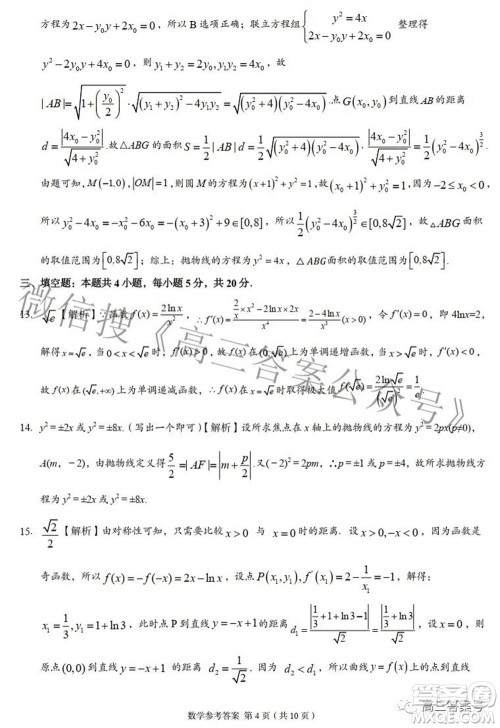 方程为 2x-y₀y+2x₀=0，所以 B 选项正确；联立方程组 { y²=4x 2x-y₀y+2x₀=0 整理得
y²-2y₀y+4x₀=0，则 y₁+y₂=2y₀, y₁y₂=4x₀，故
|AB|=√(1+(y₀/2)²)·√((y₁+y₂)²-4y₁y₂)=√((y₀²+4)(y₀²-4x₀)). 点G(x₀,y₀) 到直线AB 的距离
d=|4x₀-y₀²|/√(4+y₀²). 故△ABG 的面积 S=1/2|AB|d=1/2√((y₀²+4)(y₀²-4x₀))·|4x₀-y₀²|/√(4+y₀²)=1/2(y₀²-4x₀)^(3/2).
由题可知, M(-1,0), |OM|=1, 则圆M的方程为 (x+1)²+y²=1, 故 (x₀+1)²+y₀²=1, 因为 -2≤x₀<0,
所以 y₀²-4x₀=-x₀²-6x₀=-(x₀+3)²+9∈[0,8]. 所以 1/2(y₀²-4x₀)^(3/2)∈[0,8√2]，故△ABG 面积
的取值范围为[0,8√2]；综上：抛物线的方程为 y²=4x，△ABG 面积的取值范围为[0,8√2].
三、填空题：本题共 4 小题，每小题 5 分，共 20 分。
13. √e【解析】∵函数 f(x)=2lnx/x², ∴f'(x)=(2/x·x²-2lnx×2x)/x⁴=(2-4lnx)/x³(x>0)，令 f'(x)=0，即 4lnx=2，
解得 x=√e，当 0<x<√e 时，f'(x)>0，故 f(x)在(0,√e)上为单调递增函数，当 x>√e 时，f'(x)<0，
故 f(x)在(√e,+∞)上为单调递减函数，∴f(x)在 x=√e 时取得极大值 f(√e)=2ln√e/(√e)²=1/e.
14. y²=±2x 或 y²=±8x.（写出一个即可）【解析】设所求焦点在 x 轴上的抛物线的方程为 y²=2px(p≠0),
A(m，-2)，由抛物线定义得 5/2=|AF|=|m+p/2|. 又(-2)²=2pm, ∴p=±1 或 p=±4，故所求抛物线方程为
y²=±2x 或 y²=±8x.
15. √2/2【解析】由对称性可知，只需要比较 x>0 与 x=0 时的距离. 设 x>0,-x<0，因为函数是
奇函数，所以 f(x)=-f(-x)=2x-lnx，设点 P(x₁,y₁), f'(x₁)=2-1/x₁=-1，解得：
x₁=1/3, y₁=1+ln3，此时点 P 到直线 y=-x+1 的距离 d₁=|1/3+1+ln3-1|/√2=|1/3+ln3|/√2，设 x=0，则
原点(0,0) 到直线 y=-x+1 的距离为 d₂=1/√2. 因为 d₂<d₁，所以曲线 y=f(x) 上的点到直线
数学参考答案 第 4 页（共 10 页）
微信搜《高三答案公众号》
高三答案号